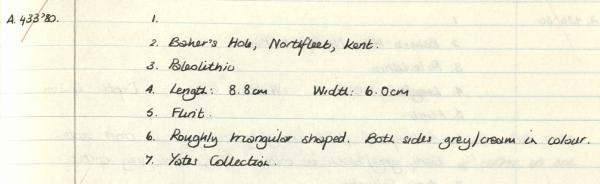 A.433'80. 1.
2. Baker's Hole, Northfleet, Kent.
3. Paleolithic
4. Length: 8.8cm Width: 6.0cm
5. Flint.
6. Roughly triangular shaped. Both sides grey/cream in colour.
7. Yates Collection.